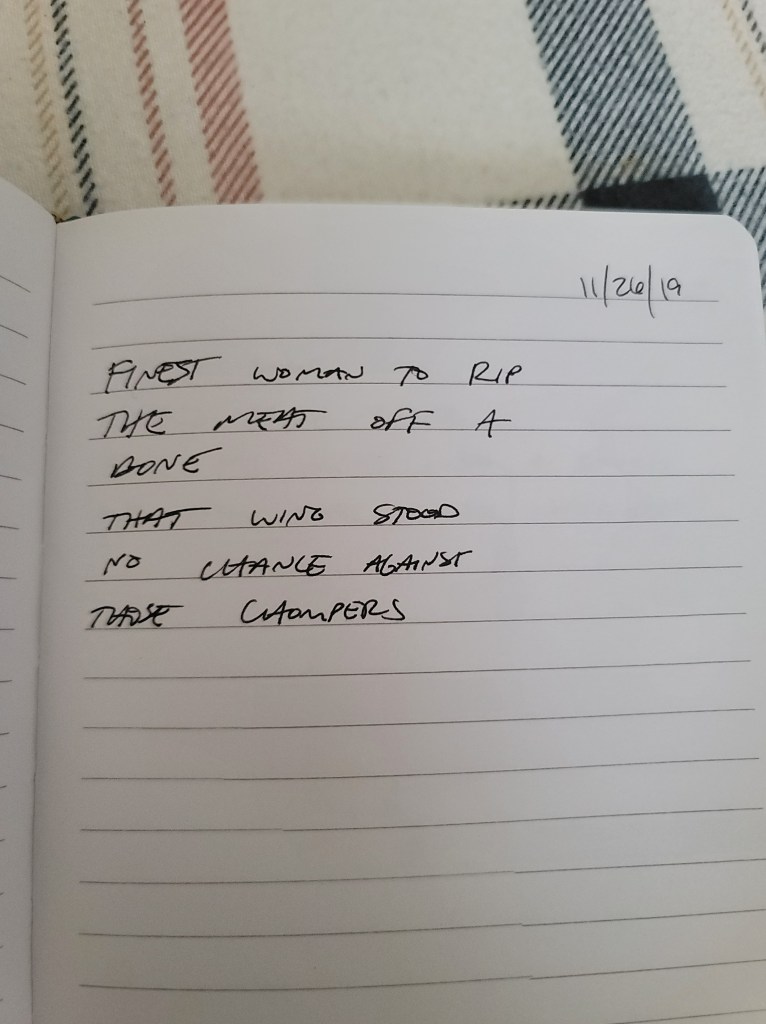 11/26/19
FINEST WOMAN TO RIP
THE MEAT OFF A
BONE
THAT WING STOOD
NO CHANCE AGAINST
THOSE CHOMPERS